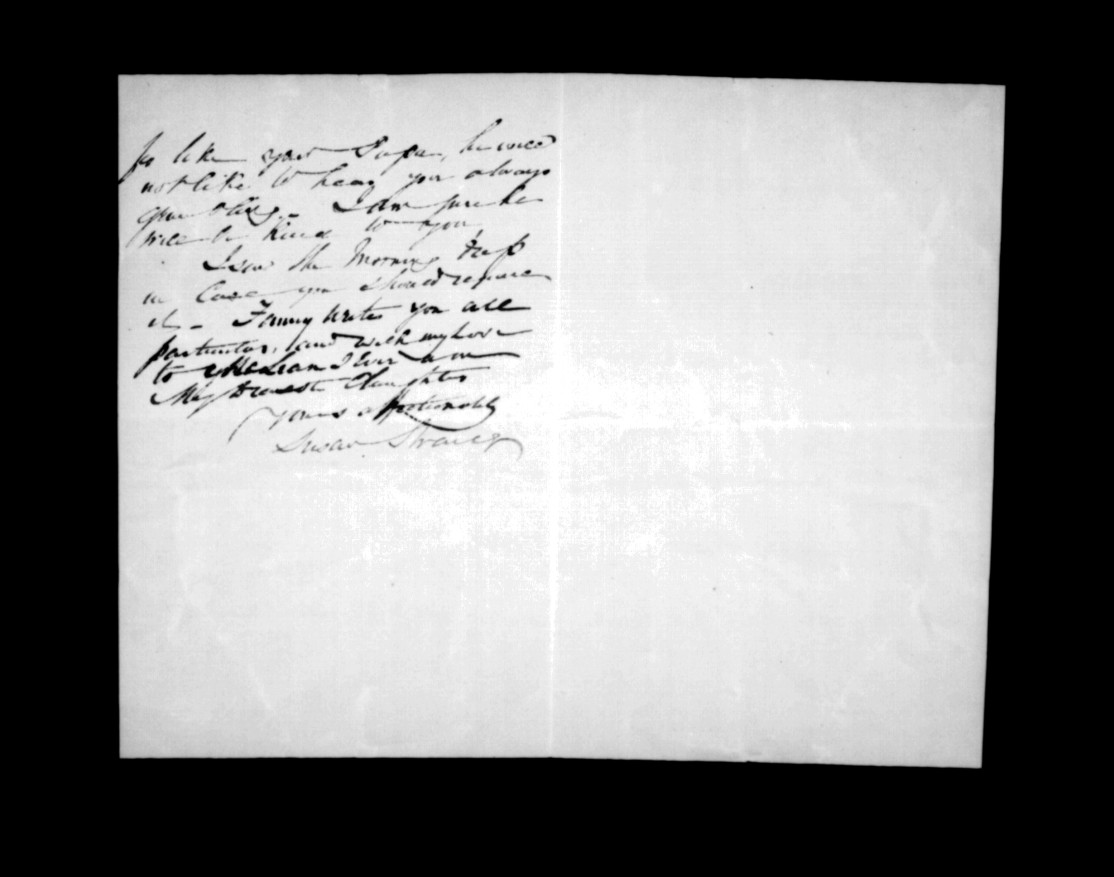 so like your Papa, he will
not like to hear you always
grumbling. I am sure he
will be kind to you
I saw the Morning
in Case you should require
it - Fanny writes you all
particulars, and with my love
to McLean I ever am
My Dearest Daughter
Yours affectionately
Susan Strang